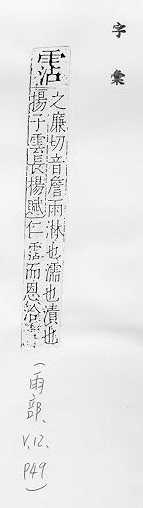 字彙
霑
之廉切音詹雨淋也濡也漬也
揚子雲長楊賦仁霑而恩洽
(雨部、
V.12.
P49)